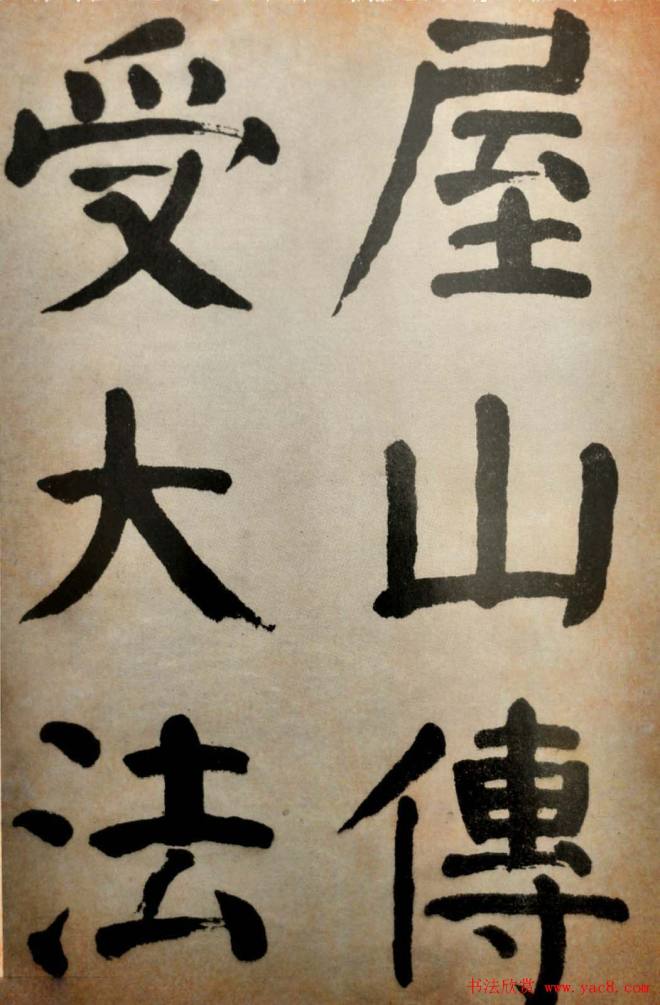 屋山傳
受大法
书法欣赏 www.yac8.com